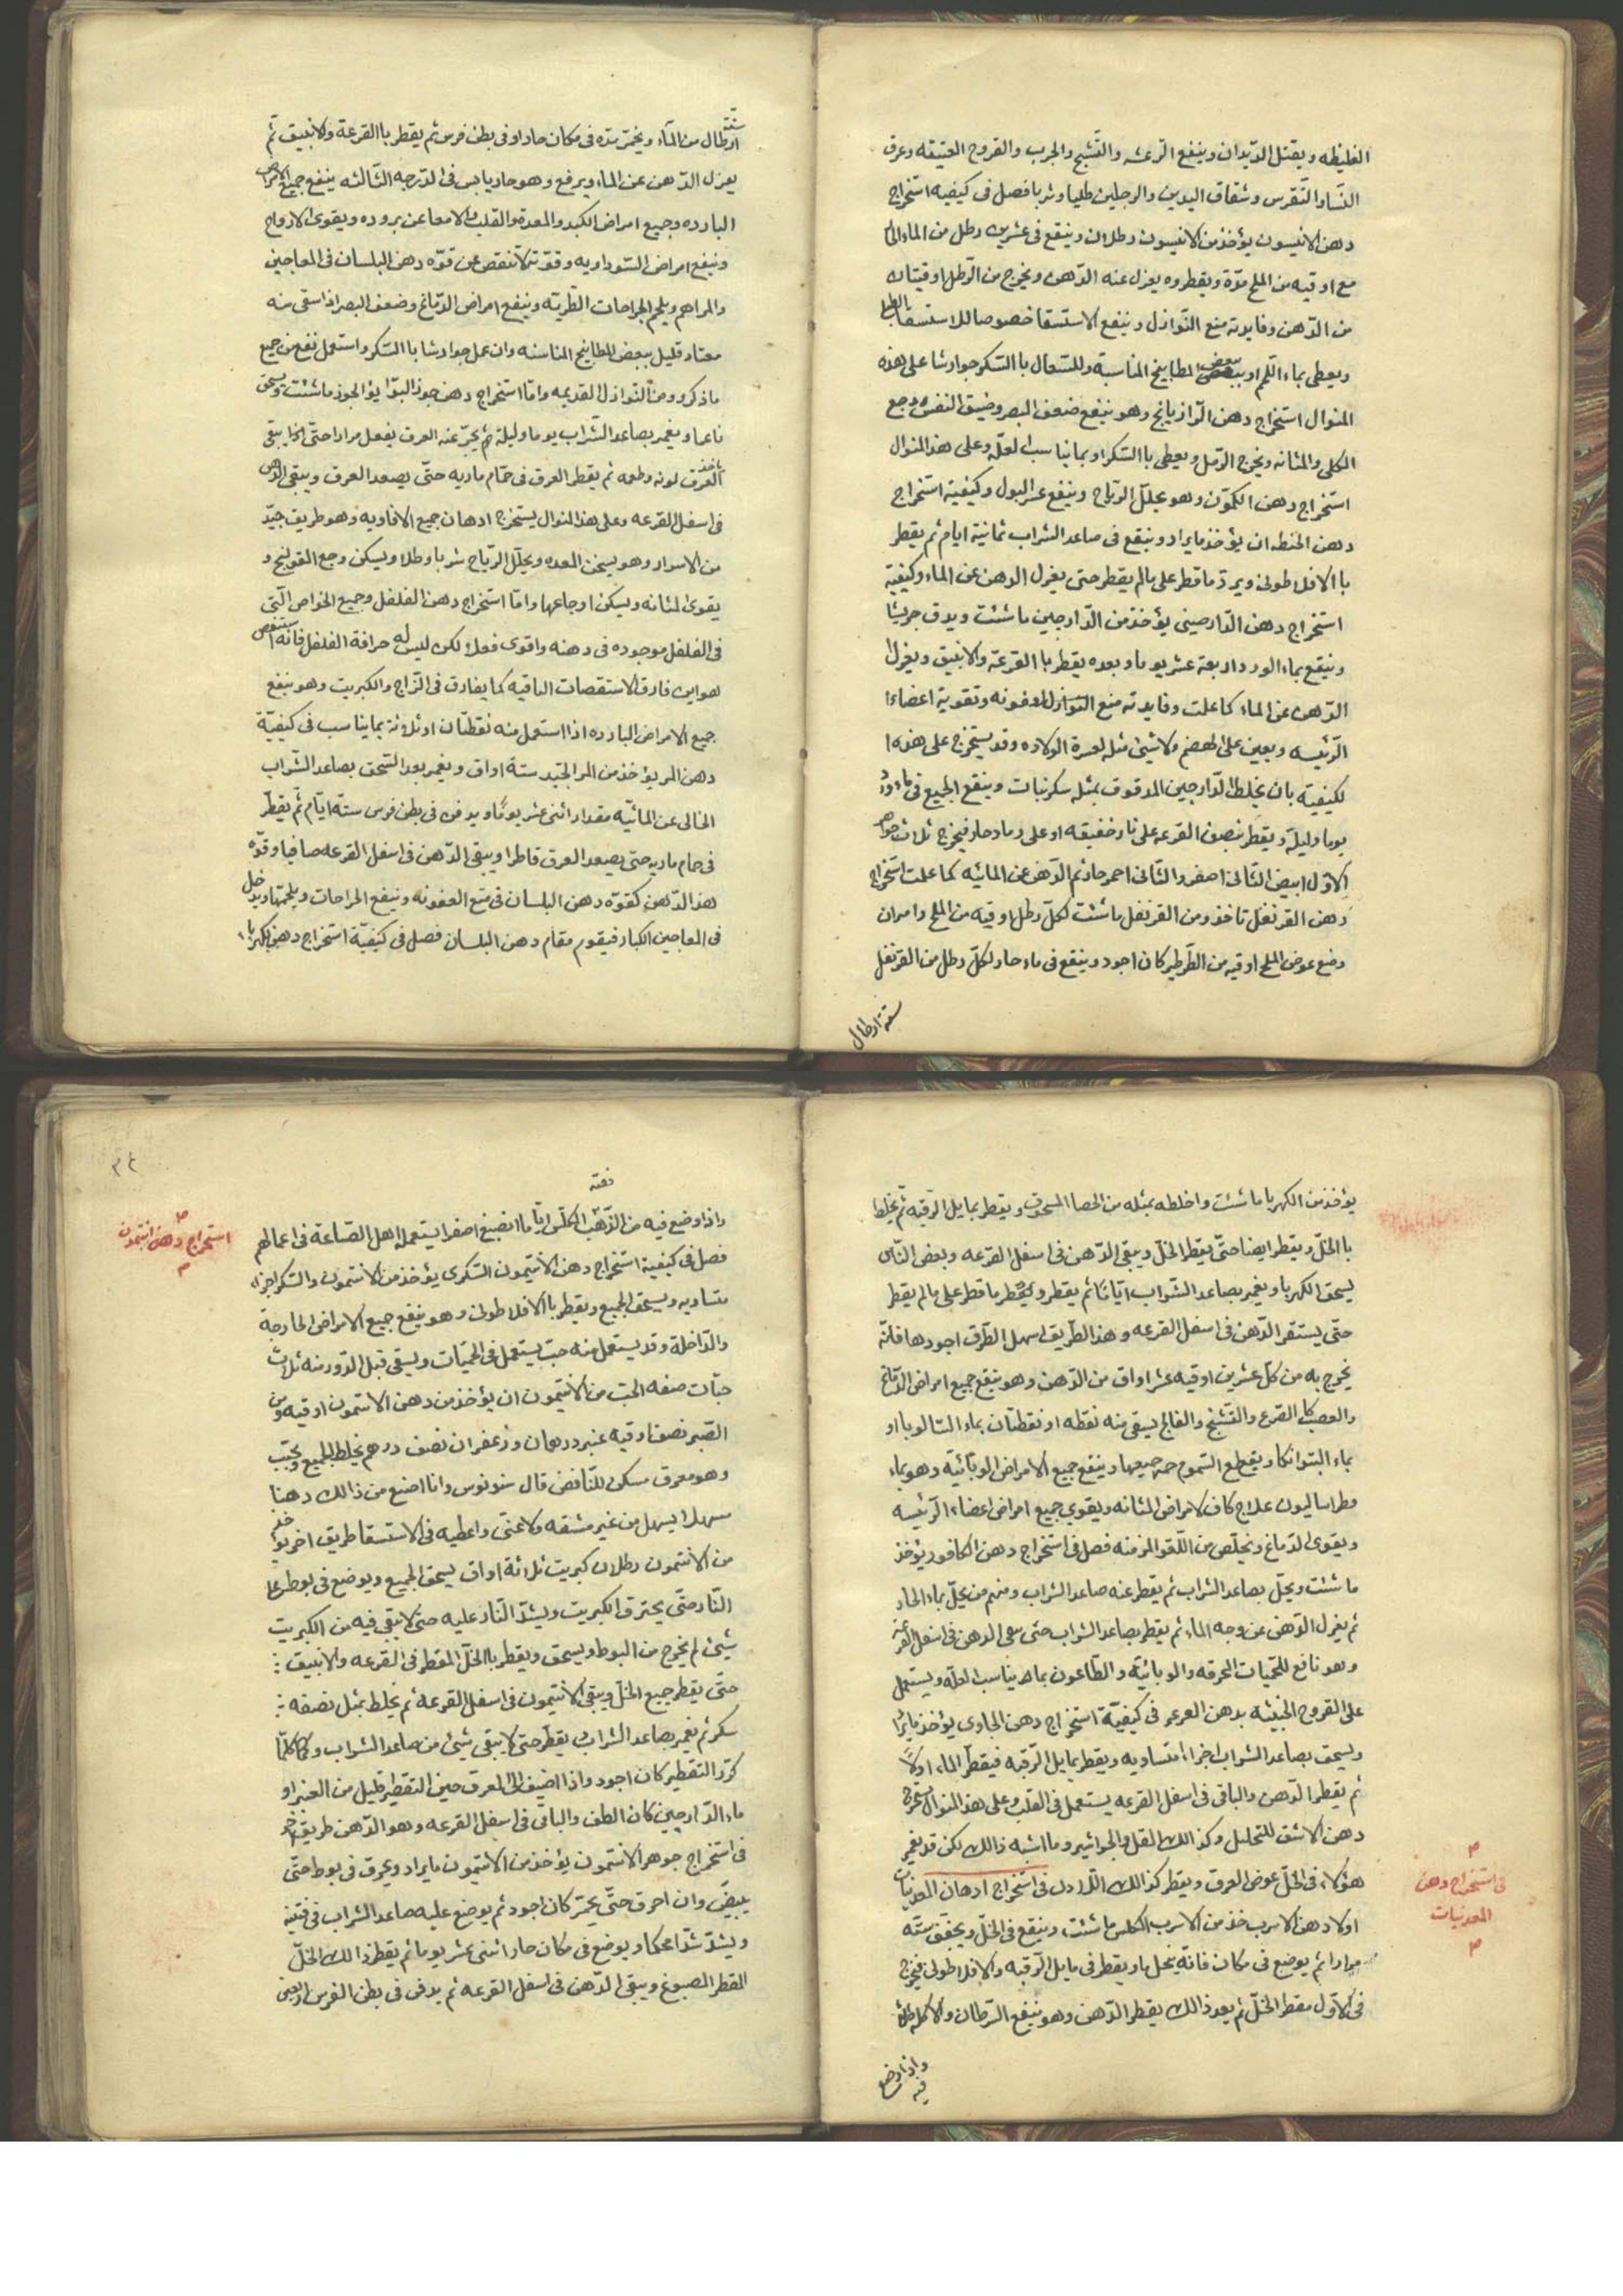 الغليظه ويقتل الديدان وينفع الرعشه والتشنج والجرب والقروح العتيقه وعرق
النسا والنقرس وشقاق اليدين والرجلين طليا وشربا فصل فى كيفيه استخراج
دهن الانيسون يؤخذ من الانيسون رطلان وينقع فى عشرين رطل من الماء الحار
مع اوقيه من الملح مدّة ويقطر وه يعزل عنه الدّهن ويخرج من الرّطل اوقيتان
من الدّهن وفايدته منع النّوازل وينفع الاستسقا خصوصا للاستسقا الطبلى
ويعطى بماء اللحم او ببعض المطابيخ المناسبة وللسّعال باالسّكر جوارشا على هذه
المنوال استخراج دهن الرّازيانج وهو ينفع ضعف البصر وضيق النفس ووجع
الكلى والمثانه ويخرج الرّمل ويعطى باالسّكر او بما يناسب العلّه وعلى هذ المنوال
استخراج دهن الكمّون وهو يحلّل الرّياح وينفع عسر البول وكيفية استخراج
دهن الحنطه ان يؤخذ ما يراد وينقع فى صاعد الشراب ثمانية ايام ثم يقطر
باالافلاطونى ويردّ ما قطر على مالم يقطر حتى يعزل الدهن عن الماء وكيفية
استخراج دهن الدّارصينى يؤخذ من الدّارجين ما شئت ويدق جريشا
وينقع بماء الورد اربعة عشر يوما وبعده يقطر باالقرعة والانبيق ويعزل
الدّهن عن الماء كما علمت وفايدته منع النوازل العفونه وتقوية اعضاء ا
الرّئيسه ويعين على الهضم ولا شئ مثله لعسرة الولاده وقد يستخرج على هذه ا
لكيفيّة بان يخلط الدّارجين المدقوق بمثله سكر نبات وينقع الجميع فى ماء ورد
يوما وليلة ويقطر بنصف القرعه على نار خفيفه او على رماد حار فيخرج ثلاث جواهر
الاوّل ابيض الثّانى اصفر والثّانى احمر حاد ثم الدّهن عن المائيّه كما علمت استخراج
دهن القرنفل تاخذ ومن القرنفل ما شئت لكلّ رطل اوقيه من الملح وامران
وضع عوض الملح اوقيه من الطّرطير كان اجود وينقع فى ماء حار لكلّ رطل من القرنفل
ستة ارطال
ستة
ارطال من الماء ويخمّر مدّه فى مكان حار او فى بطن فرس ثم يقطر باالقرعة والانبيق ثم
يعزل الدّهن عن الماء ويرفع وهو حار يابس فى الدّرجه الثّالثه ينفع جميع الامراض
البارده وجميع امراض الكبد والمعدة والقلب والامعا عن بروده ويقوى الارواح
وينفع امراض السّوداويه وقوّته لا تنقص عن قوّه دهن البلسان فى المعاجين
والمراهم ويلحم الجراحات الطّريّه وينفع امراض الدّماغ وضعف البصر اذا سقى منه
مقدار قليل ببعض المطابيخ المناسبه وان عمل جوارشا باالسّكر واستعمل نفع من جميع
ما ذكر ومن النّوازل القديمه وامّا استخراج دهن جوز البوّا يؤ الجوز ما شئت ويسحق
ناعما ويغمر بصاعد الشّراب يوما وليلة ثم يجرّ عنه العرق يفعل مرارا حتّى لا يبقى
ياخذ العرق لونه وطعمه ثم يقطر العرق فى حمّام ماريه حتّى يصعد العرق ويبقى الدّهن
فى اسفل القرعه وعلى هذا المنوال يستخرج ادهان جميع الافاويه وهو طريق جيّد
من الاسرار وهو يسخن المعده ويحلّل الرّياح شربا وطلاء ويسكن وجع القولنج و
يقوى المثانه ويسكن اوجاعها وامّا استخراج دهن الفلفل وجميع الخواص الّتى
فى الفلفل موجوده فى دهنه واقوى فعلا لكن ليس له حرافة الفلفل فانه استنقص
هواين فارق الاستقصات الباقيه كما يفارق فى الزّاج والكبريت وهو ينفع
جميع الامراض البارده اذا استعمل منه نقطتان او ثلاثة بما يناسب فى كيفيّة
دهن المر يؤخذ من المر الجيّد ستة اواق ويغمر بعد السّحق بصاعد الشّراب
الخالى عن المائيّه مقدار اثنى عشر يوماً ويدفن فى بطن فرس ستة ايّام ثم يقطر
فى حمام ماريه حتّى يصعد العرق قاطرا ويبقى الدّهن فى اسفل القرعه صافيا وقوّه
هذ الدّهن كقوّه دهن البلسان فى منع العفونه وينفع الجراحات ويلحمها ويدخل
فى المعاجين الكبار فيقوم مقام دهن البلسان فصل فى كيفيّة استخراج دهن الكهربا
يؤخذ من الكهربا ما شئت واخلطه بمثله من الحصا المسحوق ويقطر بمايل الرّقبه ثم يخلط
باالخلّ ويقطر ايضا حتّى يقطر الخلّ ويبقى الدّهن فى اسفل القرعه وبعض النّاس
يسحق الكهربا ويغمر بصاعد الشّراب ايّامًا ثم يقطر ويقطر ما قطر على مالم يقطر
حتّى يستقر الدّهن فى اسفل القرعه وهذ الطّريق اسهل الطّرق اجودها فانّه
يخرج به من كلّ عشرين اوقيه عشر اواق من الدّهن وهو ينفع جميع امراض الدّماغ
والعصب كا الصّرع والتّشنّج والفالج يسقى منه نقطه او نقطتان بماء السّالوبا او
بماء البتوانكا ويقطع السّموم جميعها وينفع جميع الامراض الوبائيّة وهو بماء
فطراساليون علاج كاف لامراض المثانه ويقوي جميع امراض اعضاء الرّئيسه
ويقوى الدّماغ ويخلّص من اللّقوا المزمنه فصل فى استخراج دهن الكافور يؤخذ
ما شئت ويحلّ بصاعد الشراب ثم يقطر عنه صاعد الشّراب ومنهم من يحلّ بماء الحار
ثم يعزل الدّهن عن وجه الماء ثم يقطر بصاعد الشراب حتى يبقى الدهن فى اسفل القرعة
وهو نافع للحّميات المحرقه والوبائيّة والطّاعون بماء يناسب العلّه ويستعمل
على القروح الخبيثه بدهن العرعر فى كيفيّة استخراج دهن الجاوى يؤخذ ما يراد
ويسحق بصاعد الشراب اجزاء متساويه ويقطر بمايل الرّقبه فيقطر الماء اولاً
ثم يقطر الدّهن والباقى فى اسفل القرعه يستعمل فى القلب وعلى هذ المنوال يستخرج
دهن الاشق للتحليل وكذ الك المقل والجواشير وما اشبه ذالك لكن قد يغمر
هؤلاء فى الخلّ عوض العرق ويقطر كذ الك الاول فى استخراج ادهان المعدنيات
اولا دهن الاسرب خذ من الاسرب المكلس ما شئت وينقع فى الخلّ ويجفّف ستّه
مرارا ثم يوضع فى مكان فانّه ينحل ماء ويقطر فى مايل الرّقبه والافلاطونى فيخرج
فى الاوّل مقطر الخلّ ثم بعد ذالك يقطر الدّهن وهو ينفع السّرطان والاكله طلاء
فى استخراج دهن
المعدنيات
واذا وضع
فيه
٣٤
دفنه
واذا وضع فيه من الذّهب المكلّس ايّاما انصبغ اصفرا يستعمله اهل الصّناعة فى اعمالهم
استخراج دهن انتمون
فصل فى كيفية استخراج دهن الانتيمون السّكرى يؤخذ من الانتمون والسّكر اجزاء
متساويه ويسحق الجميع ويقطر باالافلاطونى وهو ينفع جميع الامراض الخارجة
والدّاخلة وقد يستعمل منه حبّ يستعمل فى الحمّيات ويسقى قبل الدّور منه ثلاث
حبّات صفه الحب من الانتيمون ان يؤخذ من دهن الانتمون اوقيه ومن
الصّبر نصف اوقيه عنبر درهمان وزعفران نصف درهم يخلط الجميع ويحبّب
وهو معرق مسكن للنّافض قال سنونوس وانا اصنع من ذالك دهنا
مسهلا يسهل من غير مشقه ولا عنّى واعطيه فى الاستسقا طريق اخر يؤخذ
من الانتمون رطلان كبريت ثلاثة اواق يسحق الجميع ويوضع فى بوط على
النّار حتّى يحترق الكبريت ويشدّ النّار عليه حتى لا يبقى فيه من الكبريت
شئ ثم يخرج من البوط ويسحق ويقطر باالخلّ المقطر فى القرعه والانبيق
حتّى يقطر جميع الخلّ ويبقى الانتيمون فى اسفل القرعة ثم يخلط بمثل نصفه
سكر ثم يغمر بصاعد الشراب يقطر حتى لا يبقى شئ من صاعد الشراب وكما كلّما
كرّر التقطير كان اجود واذا اضيف الى العرق حين التقطير قليل من العنبر او
ماء الدّارجين كان الطف والباقى فى اسفل القرعه وهو الدّهن طريق اخر
فى استخراج جوهر الانتمون يؤخذ من الانتيمون ما يراد ويحرق فى بوط حتّى
يبيضّ وان احرق حتّى يحمّر كان اجود ثم يوضع عليه صاعد الشراب فى قنينه
ويشدّ شدّا محكما ويوضع فى مكان حار اثنى عشر يوما ثم يقطر ذالك الخلّ
المقطر المصبوغ ويبقى الدّهن فى اسفل القرعه ثم يدفن فى بطن الفرس اربعين